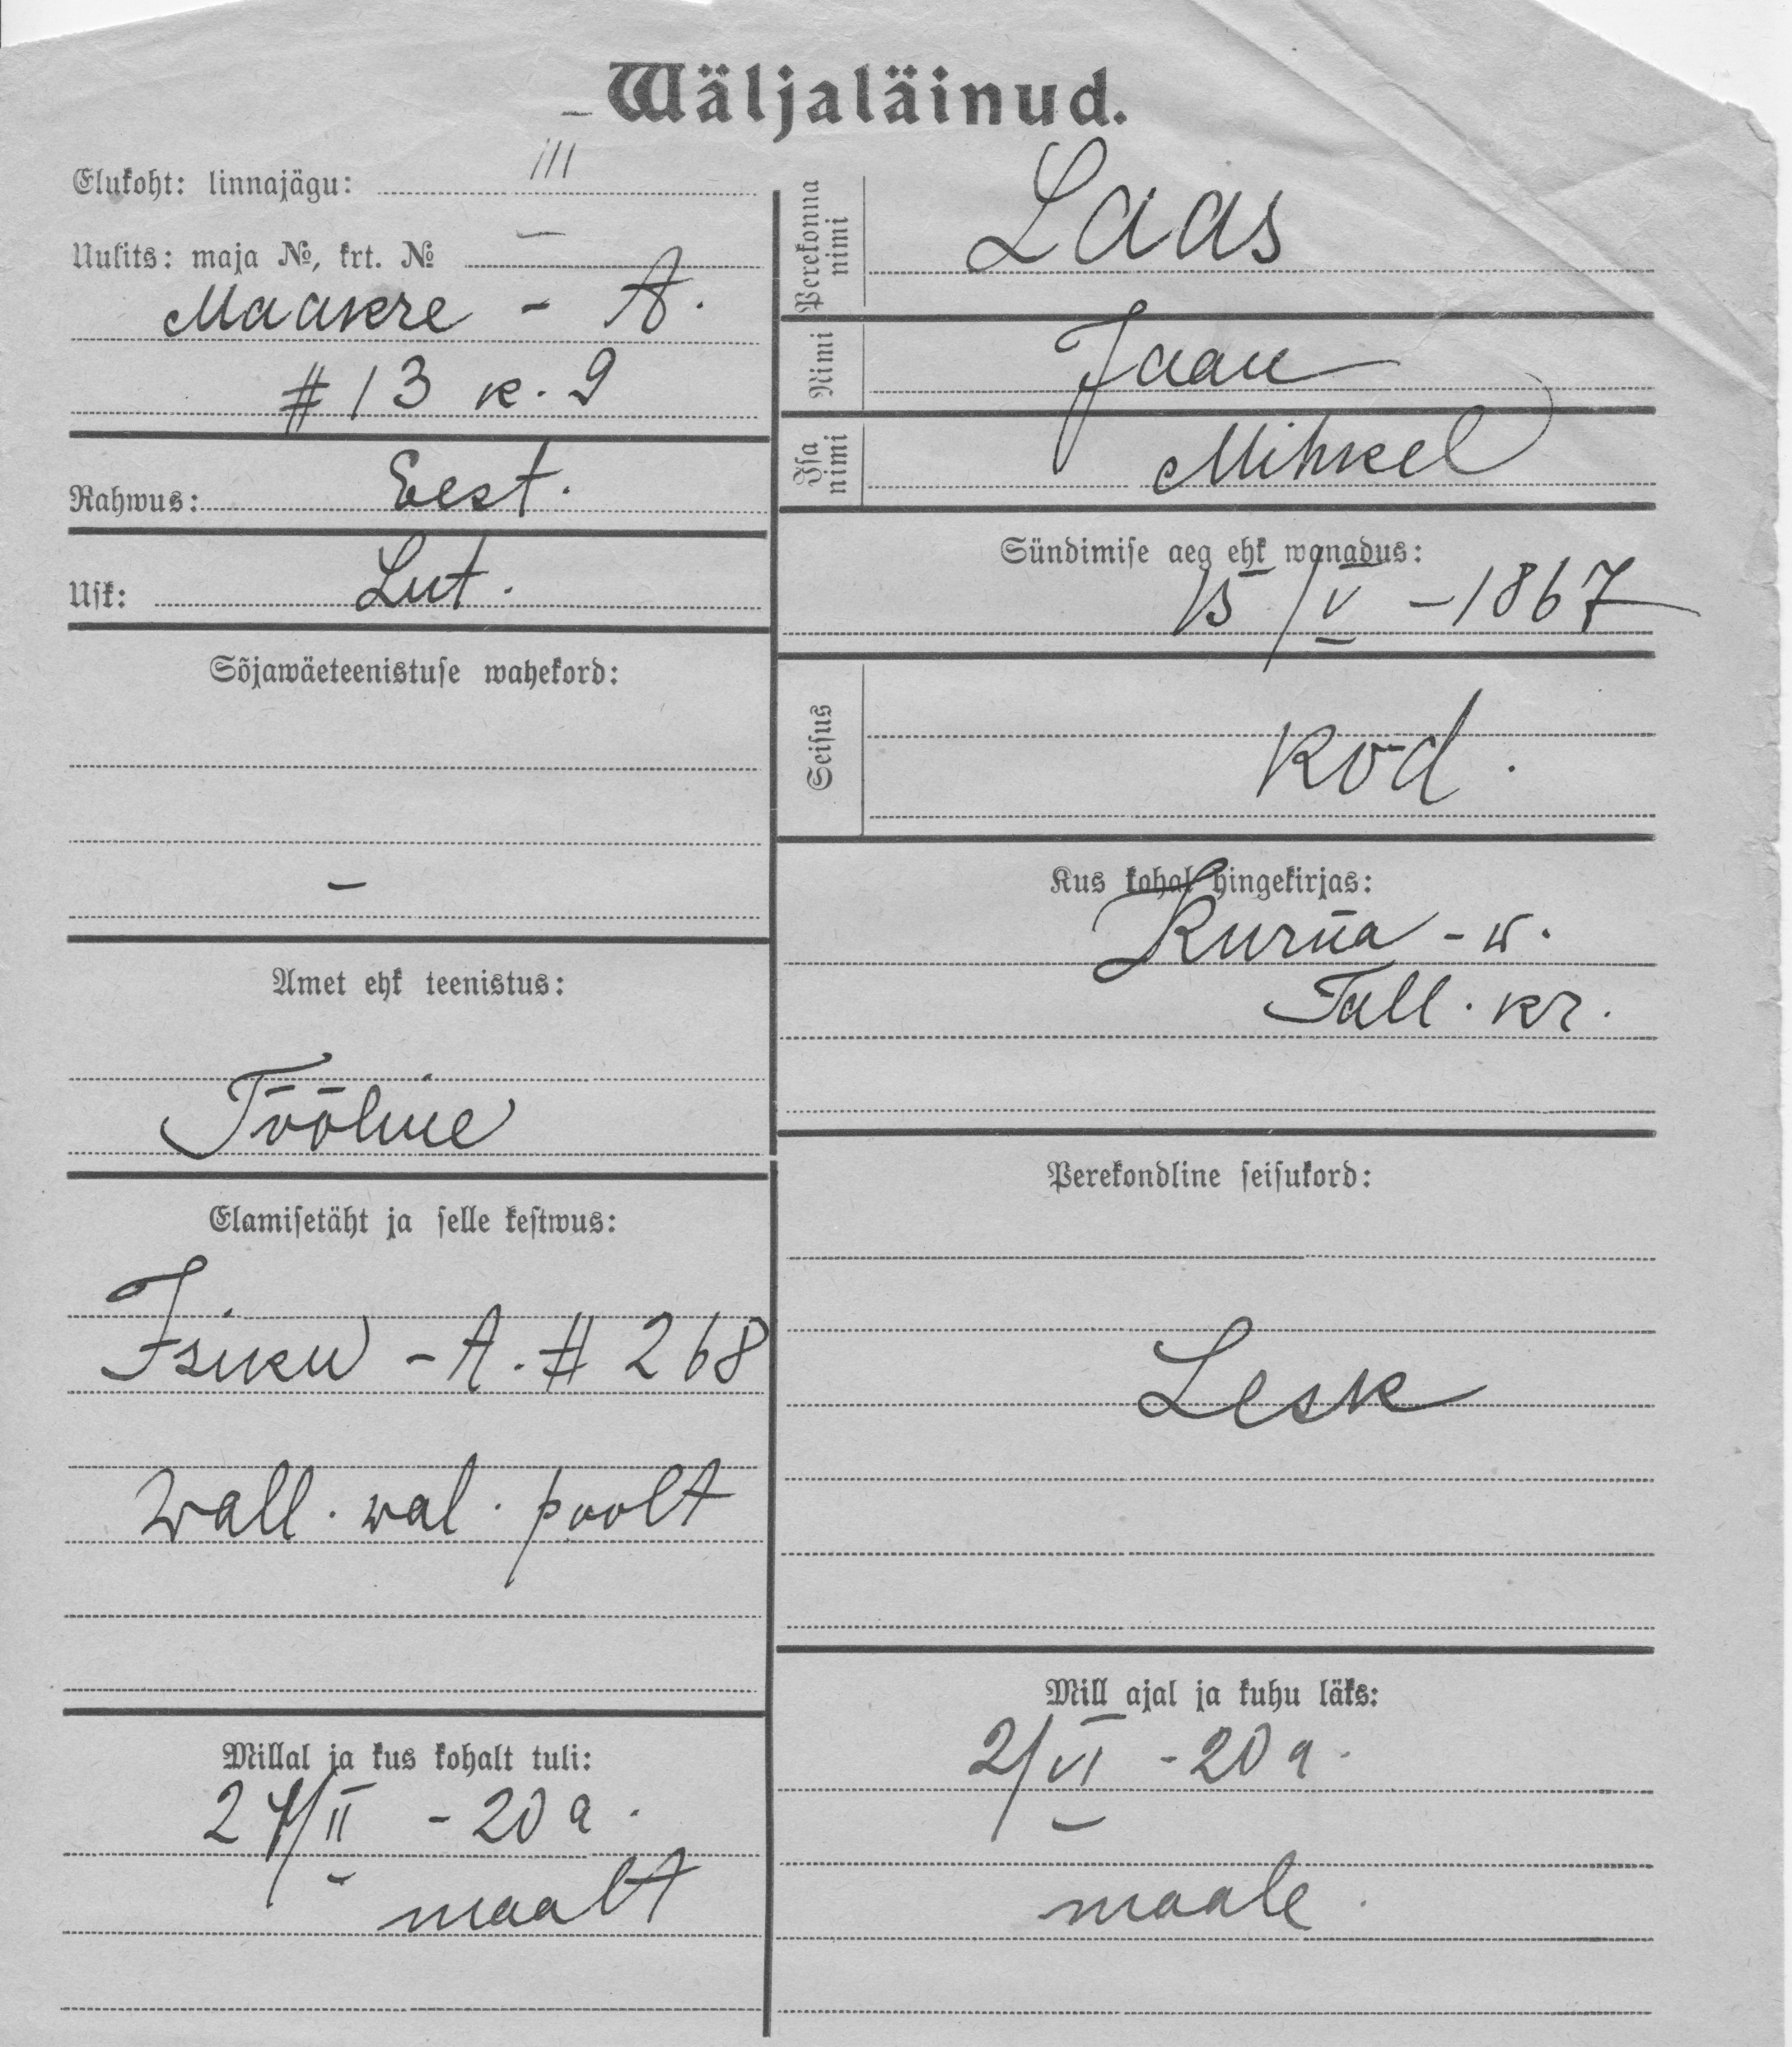 Wäljaläinud.
Elukoht: linnajägu: III
Uulits: maja №, krt. №
Maakre - t.
# 13 k. 9
Rahwus: Eest.
Usk: Lut.
Sõjawäeteenistuse wahekord:
-
Amet ehk teenistus:
Tööline
Elamisetäht ja selle kestwus:
Isiku - t. # 268
Wall. wal. poolt
Millal ja kus kohalt tuli:
/II - 20 a.
maalt
Perekonna nimi
Laas
Nimi
Jaan
Isa nimi
Mihkel
Sündimise aeg ehk wanadus:
15/V - 1867
Seisus
kod.
Kus kohal hingekirjas:
Kurna - w.
Tall. kr.
Perekondline seisukord:
Lesk
Mill ajal ja kuhu läks:
2/VI - 20 a.
maale.